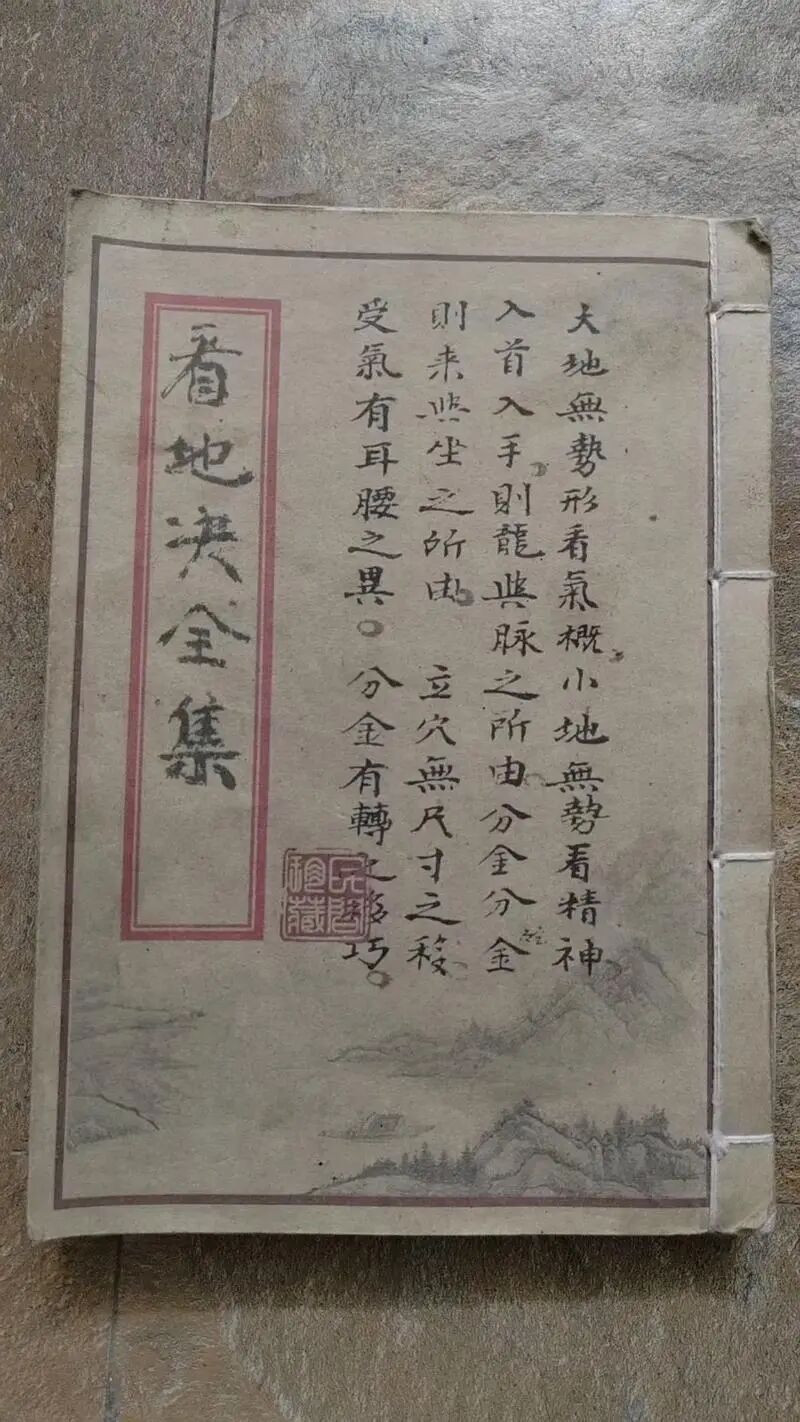 大地無勢形看氣概小地無勢看精神
入首入手則龍與脉之所由分金分金
則来與坐之所由 立穴無尺寸之移
受氣有耳腰之異。分金有轉之巧。
看地决全集
珍藏